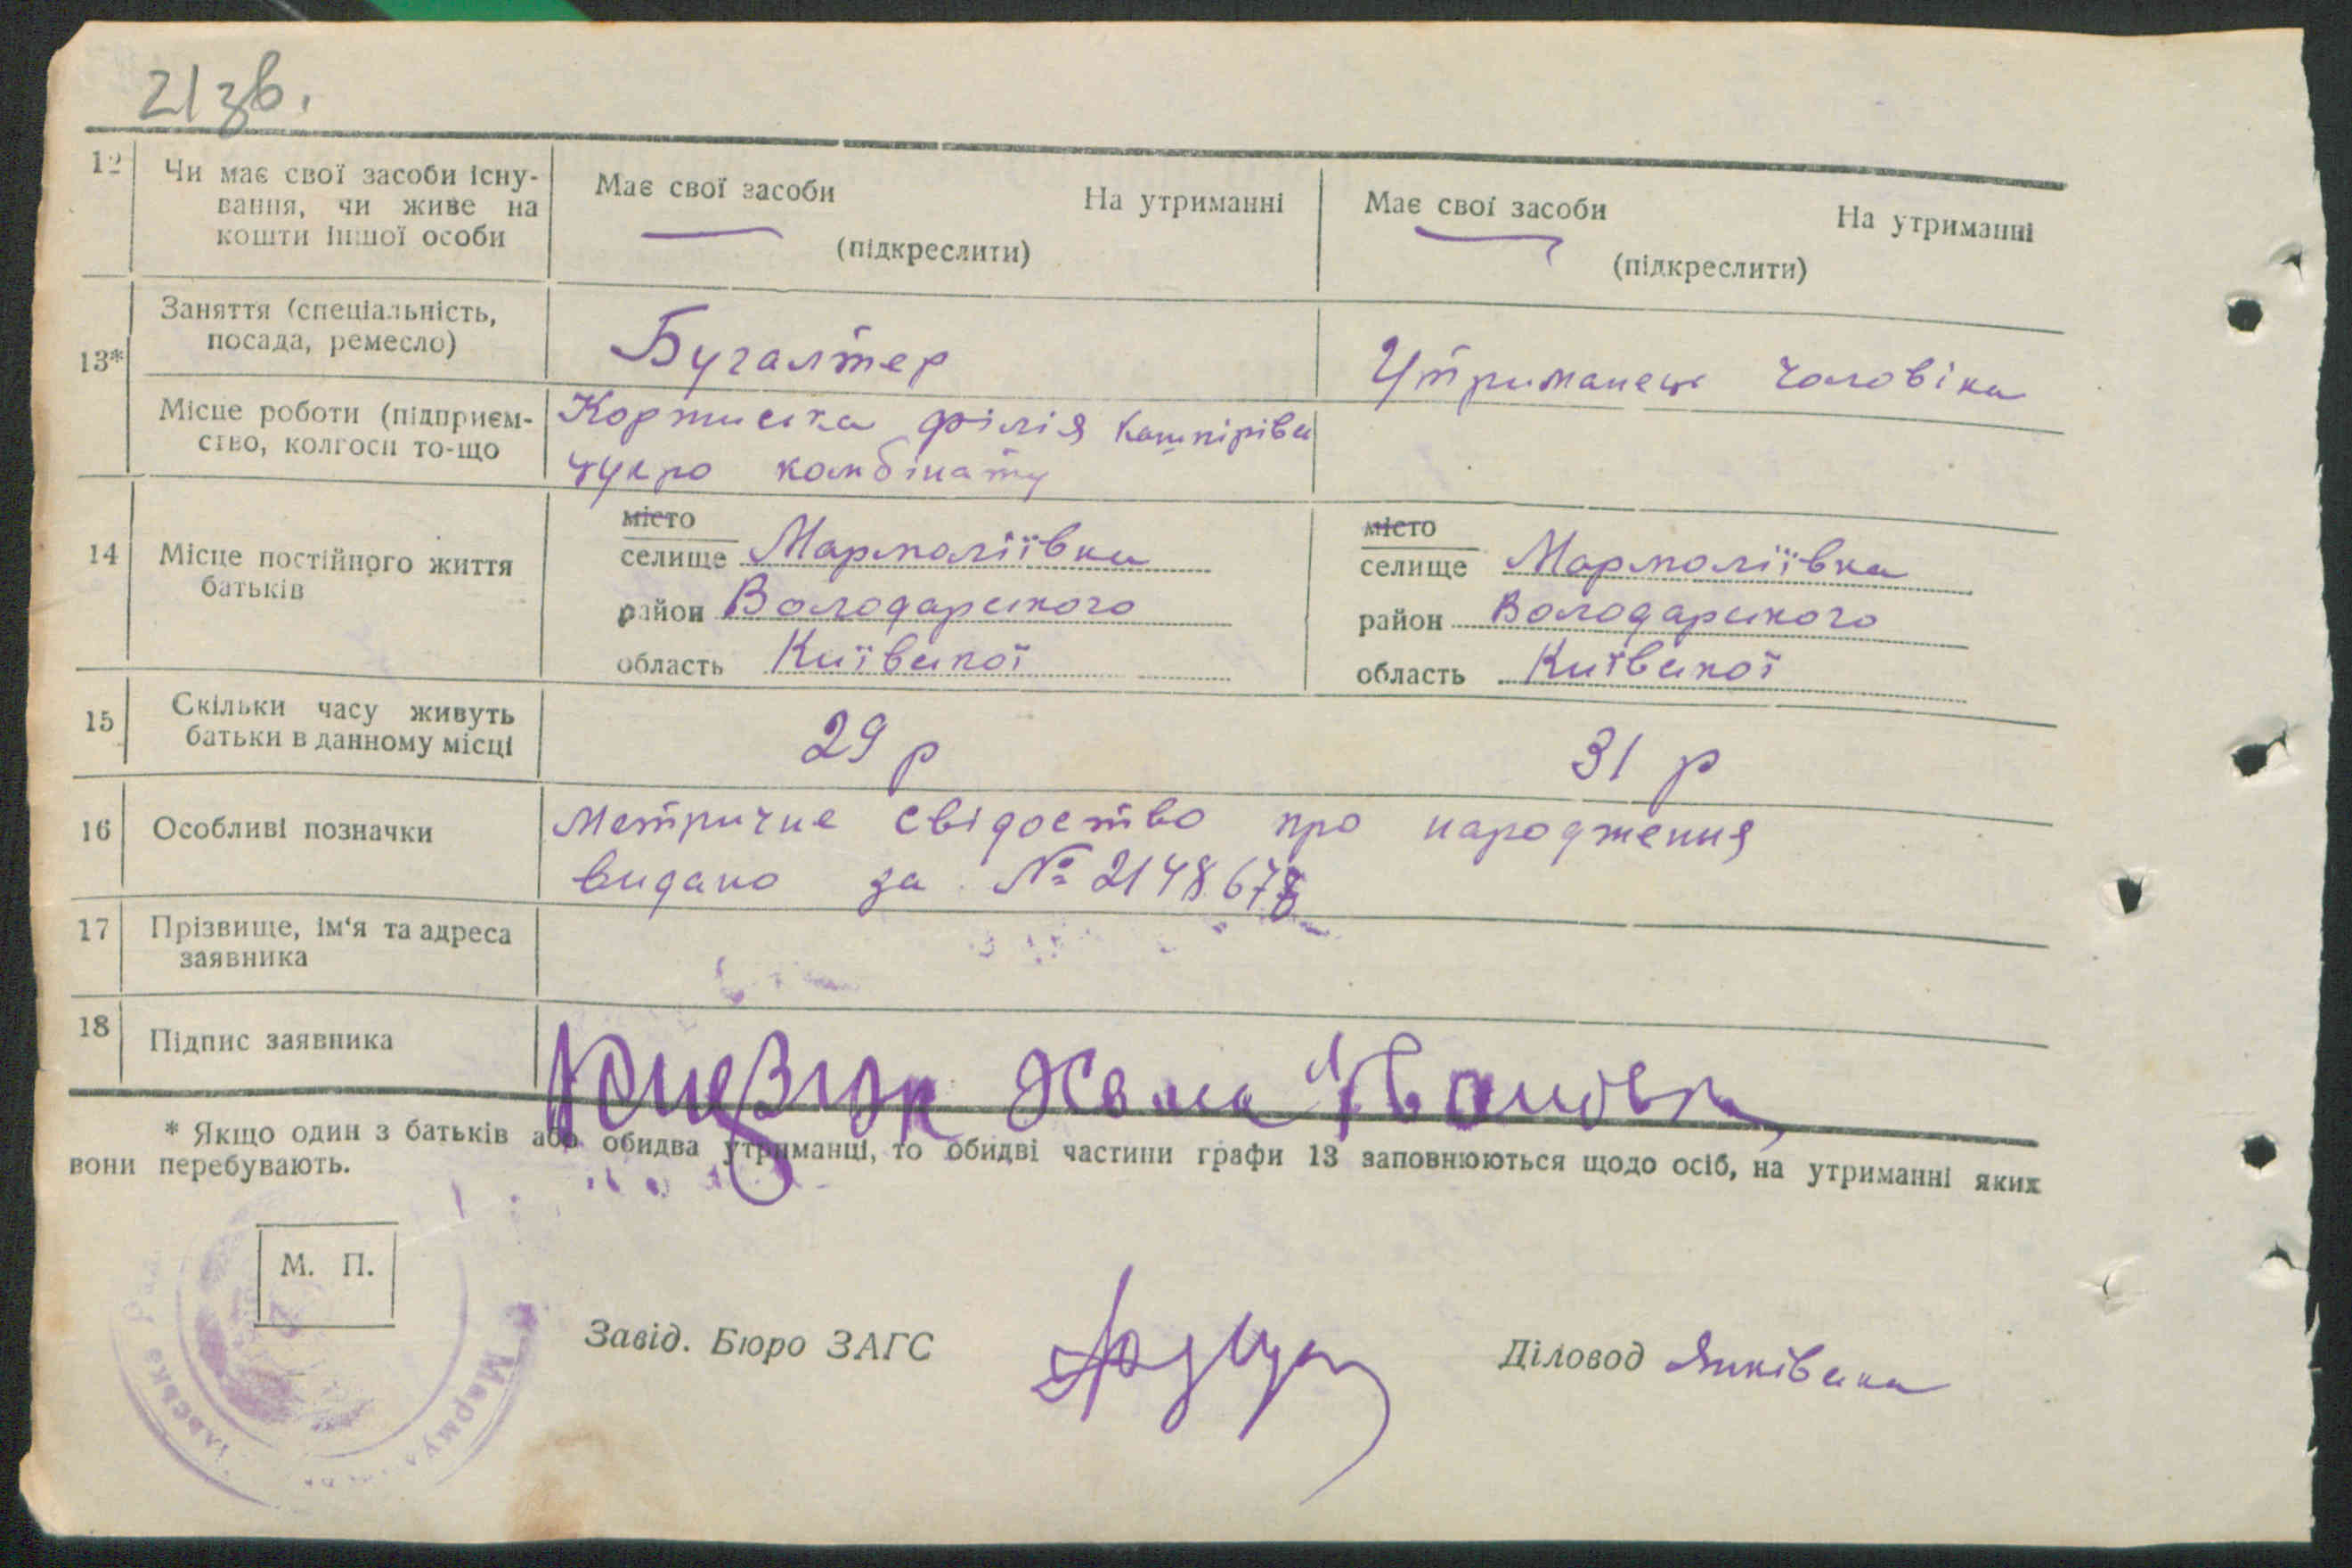 21 зв.
12 Чи має свої засоби існу-
вання, чи живе на
кошти іншої особи
Має свої засоби На утриманні
(підкреслити)
Має свої засоби На утриманні
(підкреслити)
13*
Заняття (спеціальність,
посада, ремесло)
Бугалтер
Утриманець чоловіка
Місце роботи (підприєм-
ство, колгосп то-що
філія
цукро комбінату
14 Місце постійного життя
батьків
місто
селище Мармоліївка
район Володарського
область Київської
місто
селище Мармоліївка
район Володарського
область Київської
15 Скільки часу живуть
батьки в данному місці
29 р
31 р
16 Особливі позначки
Метричне свідоство про народження
видано за № 2148678
17 Прізвище, ім'я та адреса
заявника
18 Підпис заявника
* Якщо один з батьків або обидва утриманці, то обидві частини графи 13 заповнюються щодо осіб, на утриманні яких
вони перебувають.
М. П.
Завід. Бюро ЗАГС
Діловод Янківська